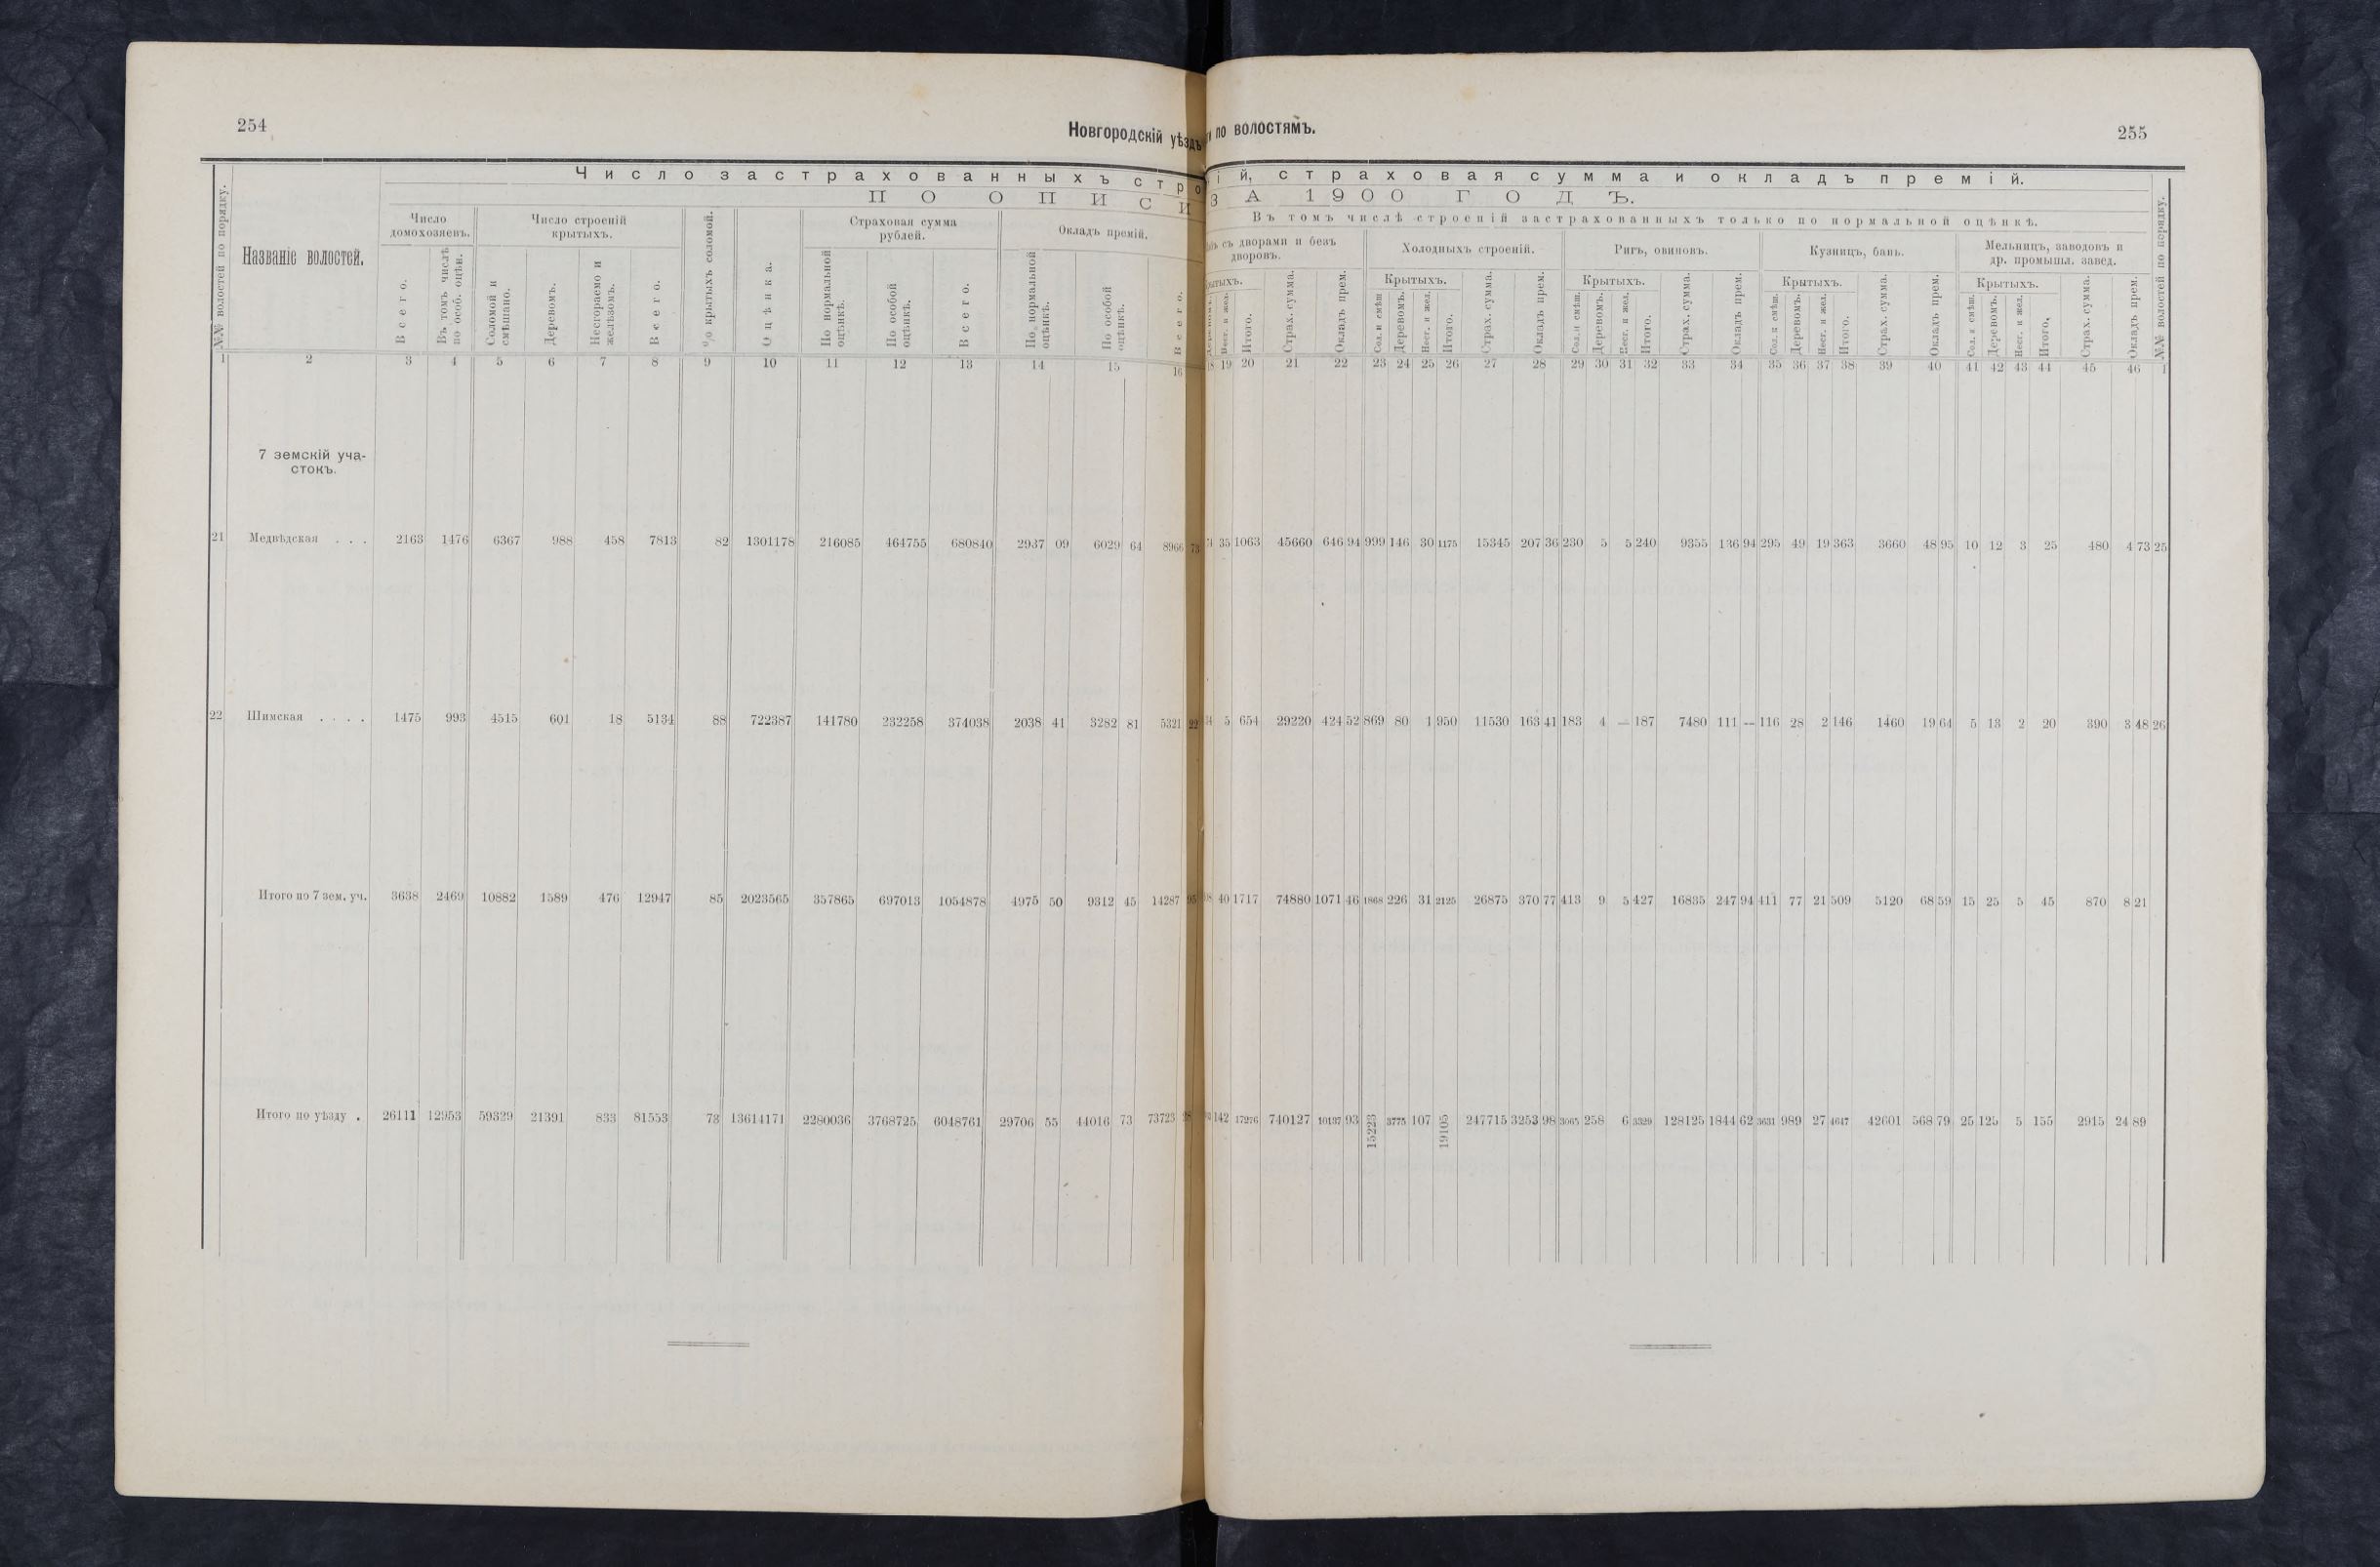 254
Новгородскій уѣздъ
Число застрахованныхъ стро
ПО ОПИСИ
№№ волостей по порядку.
Названіе волостей.
Число домохозяевъ.
Всего.
Въ томъ числѣ по особ. оцѣн.
Число строеній крытыхъ.
Соломой и смѣшано.
Деревомъ.
Несгораемо и желѣзомъ.
Всего.
% крытыхъ соломой.
Оцѣнка.
Страховая сумма рублей.
По нормальной оцѣнкѣ.
По особой оцѣнкѣ.
Всего.
Окладъ премій.
По нормальной оцѣнкѣ.
По особой оцѣнкѣ.
Всего.
1 2 3 4 5 6 7 8 9 10 11 12 13 14 15 16
7 земскій уча-
стокъ.
21 Медвѣдская . . . 2163 1476 6367 988 458 7813 82 1301178 216085 464755 680840 2937 09 6029 64 8966 73
22 Шимская . . . . 1475 993 4515 601 18 5134 88 722387 141780 232258 374038 2038 41 3282 81 5321 22
Итого по 7 зем. уч. 3638 2469 10882 1589 476 12947 85 2023565 357865 697013 1054878 4975 50 9312 45 14287 95
Итого по уѣзду . 26111 12953 59329 21391 833 81553 73 13614171 2280036 3768725 6048761 29706 55 44016 73 73723 28
по волостямъ.
255
ій, страховая сумма и окладъ премій.
ЗА 1900 ГОДЪ.
Въ томъ числѣ строеній застрахованныхъ только по нормальной оцѣнкѣ.
съ дворами и безъ дворовъ.
Деревомъ.
Несг. и жел.
Итого.
Страх. сумма.
Окладъ прем.
Холодныхъ строеній.
Крытыхъ.
Сол. и смѣш
Деревомъ.
Несг. и жел.
Итого.
Страх. сумма.
Окладъ прем.
Ригъ, овиновъ.
Крытыхъ.
Сол. и смѣш.
Деревомъ.
Несг. и жел.
Итого.
Страх. сумма.
Окладъ прем.
Кузницъ, бань.
Крытыхъ.
Сол. и смѣш.
Деревомъ.
Несг. и жел.
Итого.
Страх. сумма.
Окладъ прем.
Мельницъ, заводовъ и др. промышл. завед.
Крытыхъ.
Сол. и смѣш.
Деревомъ.
Несг. и жел.
Итого.
Страх. сумма.
Окладъ прем.
№№ волостей по порядку.
18 19 20 21 22 23 24 25 26 27 28 29 30 31 32 33 34 35 36 37 38 39 40 41 42 43 44 45 46 1
35 1063 45660 646 94 999 146 30 1175 15345 207 36 230 5 5 240 9355 136 94 295 49 19 363 3660 48 95 10 12 3 25 480 4 73 25
5 654 29220 424 52 869 80 1 950 11530 163 41 183 4 — 187 7480 111 — 116 28 2 146 1460 19 64 5 13 2 20 390 3 48 26
40 1717 74880 1071 46 1868 226 31 2125 26875 370 77 413 9 5 427 16835 247 94 411 77 21 509 5120 68 59 15 25 5 45 870 8 21
142 17276 740127 10137 93 15223 3775 107 19105 247715 3253 98 3065 258 6 3329 128125 1844 62 3631 989 27 4647 42601 568 79 25 125 5 155 2915 24 89